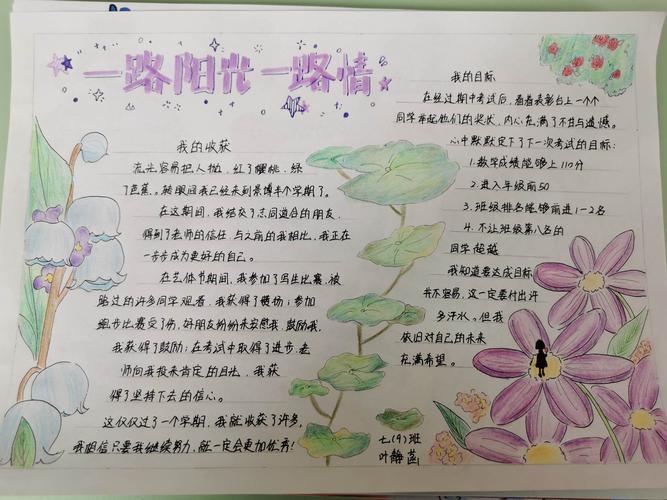 一路阳光一路情
我的收获
流光容易把人抛，红了樱桃，绿
了芭蕉。转眼间我已经来到景博半个学期了。
在这期间，我结交了志同道合的朋友，
得到了老师的信任，与之前的我相比，我正在
一步步成为更好的自己。
在艺体节期间，我参加了写生比赛，被
路过的许多同学观看，我获得了赞扬；参加
跑步比赛受了伤，好朋友纷纷来安慰我，鼓励我，
我获得了鼓励；在考试中取得了进步，老
师向我投来肯定的目光，我获
得了坚持下去的信心。
这仅仅过了一个学期，我就收获了许多，
我相信只要我继续努力，就一定会更加优秀！
我的目标
在经过期中考试后，看着表彰台上一个个
同学举起他们的奖状，内心充满了不甘与遗憾。
心中默默定下了下一次考试的目标：
1.数学成绩能够上110分
2.进入年级前50
3.班级排名能够前进1-2名
4.不让班级第八名的
同学超越
我知道要达成目标
并不容易，这一定要付出许
多汗水。但我
依旧对自己的未来
充满希望。
七(9)班
叶静菡